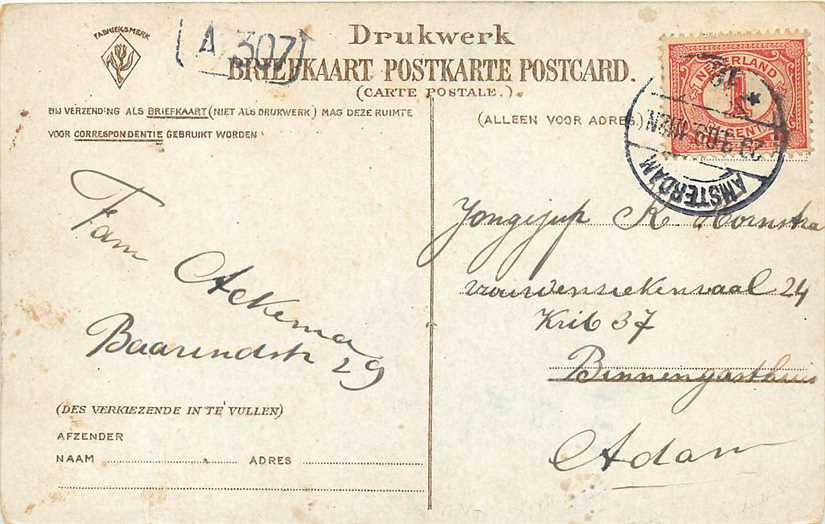 FABRIEKSMERK
(A 307)
Drukwerk
BRIEFKAART POSTKARTE POSTCARD.
(CARTE POSTALE.)
BIJ VERZENDING ALS BRIEFKAART (NIET ALS DRUKWERK) MAG DEZE RUIMTE
VOOR CORRESPONDENTIE GEBRUIKT WORDEN
(ALLEEN VOOR ADRES)
NEDERLAND
1
CENT
AMSTERDAM
Fam
Ackema
Baarendstr 29
Jongejuf K. Hoornstra
vrouwenziekenzaal 24
Krib 37
Binnengasthuis
Adam
(DES VERKIEZENDE IN TE VULLEN)
AFZENDER
NAAM ADRES